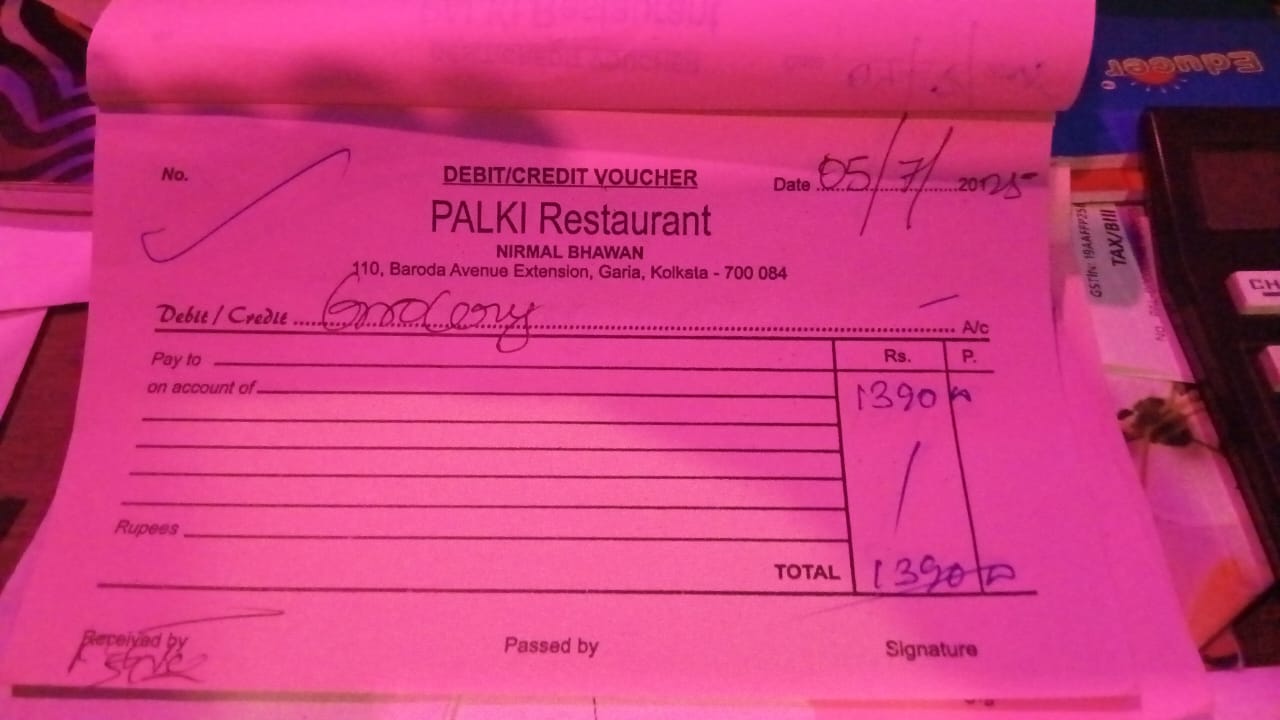 Educer
No.
DEBIT/CREDIT VOUCHER
Date 05/7/ 20125
PALKI Restaurant
NIRMAL BHAWAN
110, Baroda Avenue Extension, Garia, Kolkata - 700 084
Debit / Credit Grocery A/c
Pay to Rs. P.
on account of 1390
Rupees
TOTAL 1390
Received by Passed by Signature
TAX/Bill
CH